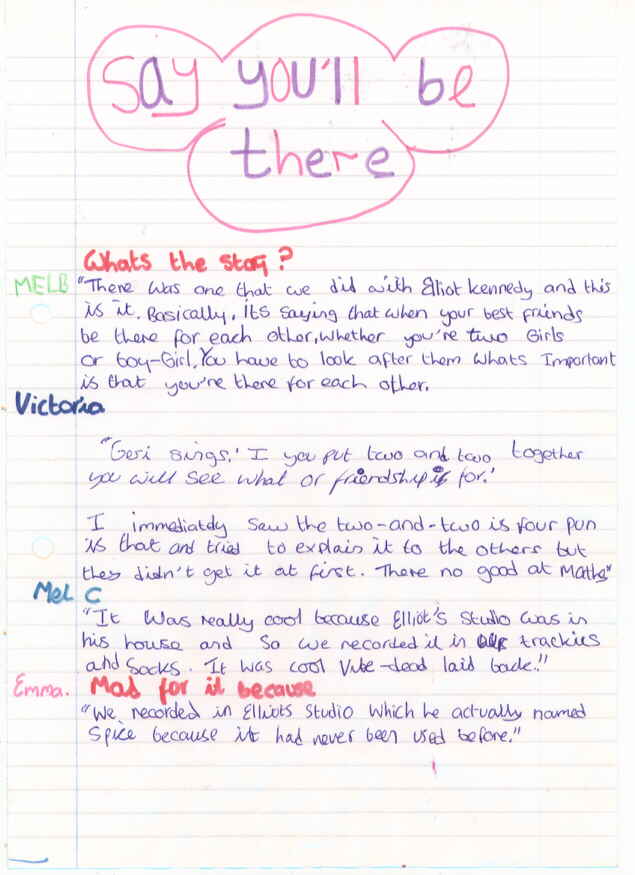 Say you'll be
there
Whats the story?
MELB "There was one that we did with Elliot Kennedy and this
is it. Basically, its saying that when your best friends
be there for each other, whether you're two Girls
or boy-Girl, You have to look after them whats Important
is that you're there for each other.
Victoria
"Geri sings.' I you put two and two together
you will see what or friendship is for.'
I immediatdy saw the two-and-two is four pun
is that and tried to explain it to the others but
they didn't get it at first. There no good at Maths"
Mel C
"It was really cool because Elliot's Studio was in
his house and So we recorded it in our trackies
and Socks. It was cool Vibe-dead laid back."
Emma. Mad for it because
"We recorded in Elliots Studio which he actually named
Spice because it had never been used before."